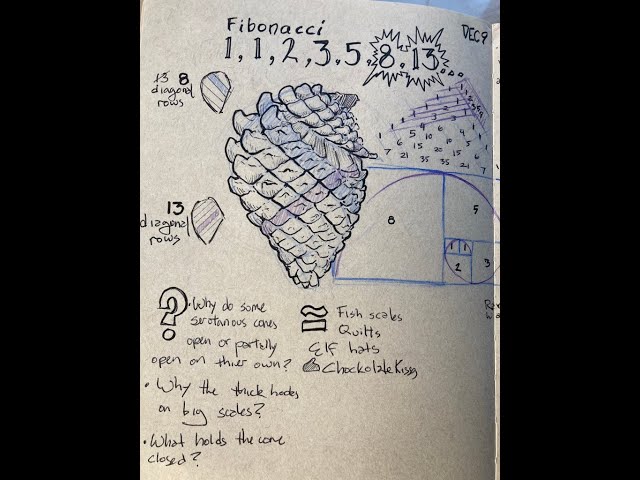 Fibonacci
DEC 9
1, 1, 2, 3, 5, 8, 13...
13 8
diagonal
rows
1 5 6 4 1
1 5 10 10 5 1
7 6 15 20 15 6 1
21 35 35 21 7
8
5
1 1
2
3
13
diagonal
rows
? • Why do some
serotinous cones
open or partially
open on thier own?
• Why the thick nodes
on big scales?
• What holds the cone
closed?
≅ Fish scales
Quilts
Elf hats
Chockolate Kisses